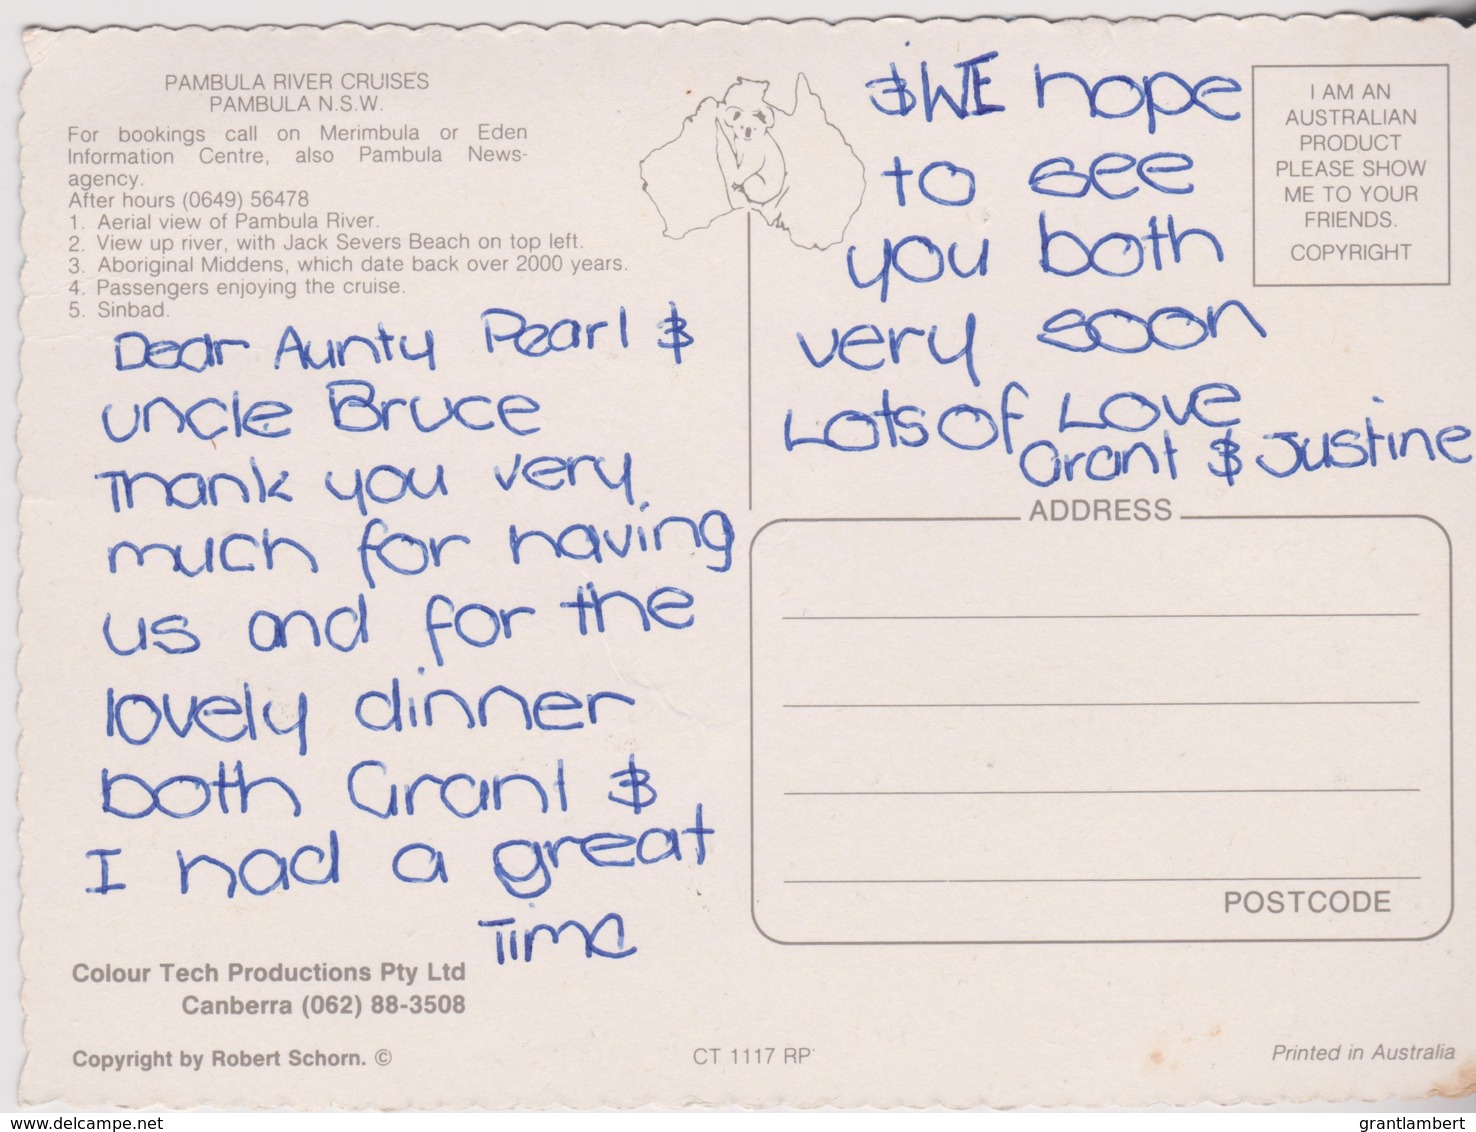 PAMBULA RIVER CRUISES
PAMBULA N.S.W.
For bookings call on Merimbula or Eden
Information Centre, also Pambula News-
agency.
After hours (0649) 56478
1. Aerial view of Pambula River.
2. View up river, with Jack Severs Beach on top left.
3. Aboriginal Middens, which date back over 2000 years.
4. Passengers enjoying the cruise.
5. Sinbad.
Dear Aunty Pearl &
uncle Bruce
Thank you very
much for having
us and for the
lovely dinner
both Grant &
I had a great
Time
Colour Tech Productions Pty Ltd
Canberra (062) 88-3508
Copyright by Robert Schorn. ©
CT 1117 RP
& WE hope
to see
you both
very soon
Lots of Love
Grant & Justine
I AM AN
AUSTRALIAN
PRODUCT
PLEASE SHOW
ME TO YOUR
FRIENDS.
COPYRIGHT
ADDRESS
POSTCODE
Printed in Australia
www.delcampe.net
grantlambert